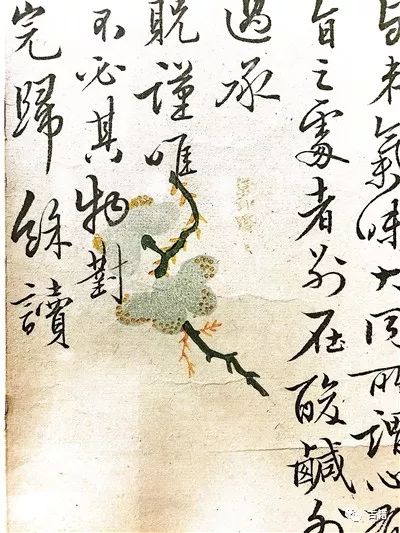 来氣味大同所謂心
旨之處者別在酸鹹外
過承
貺謹唯
不必其物對
完歸餘讀